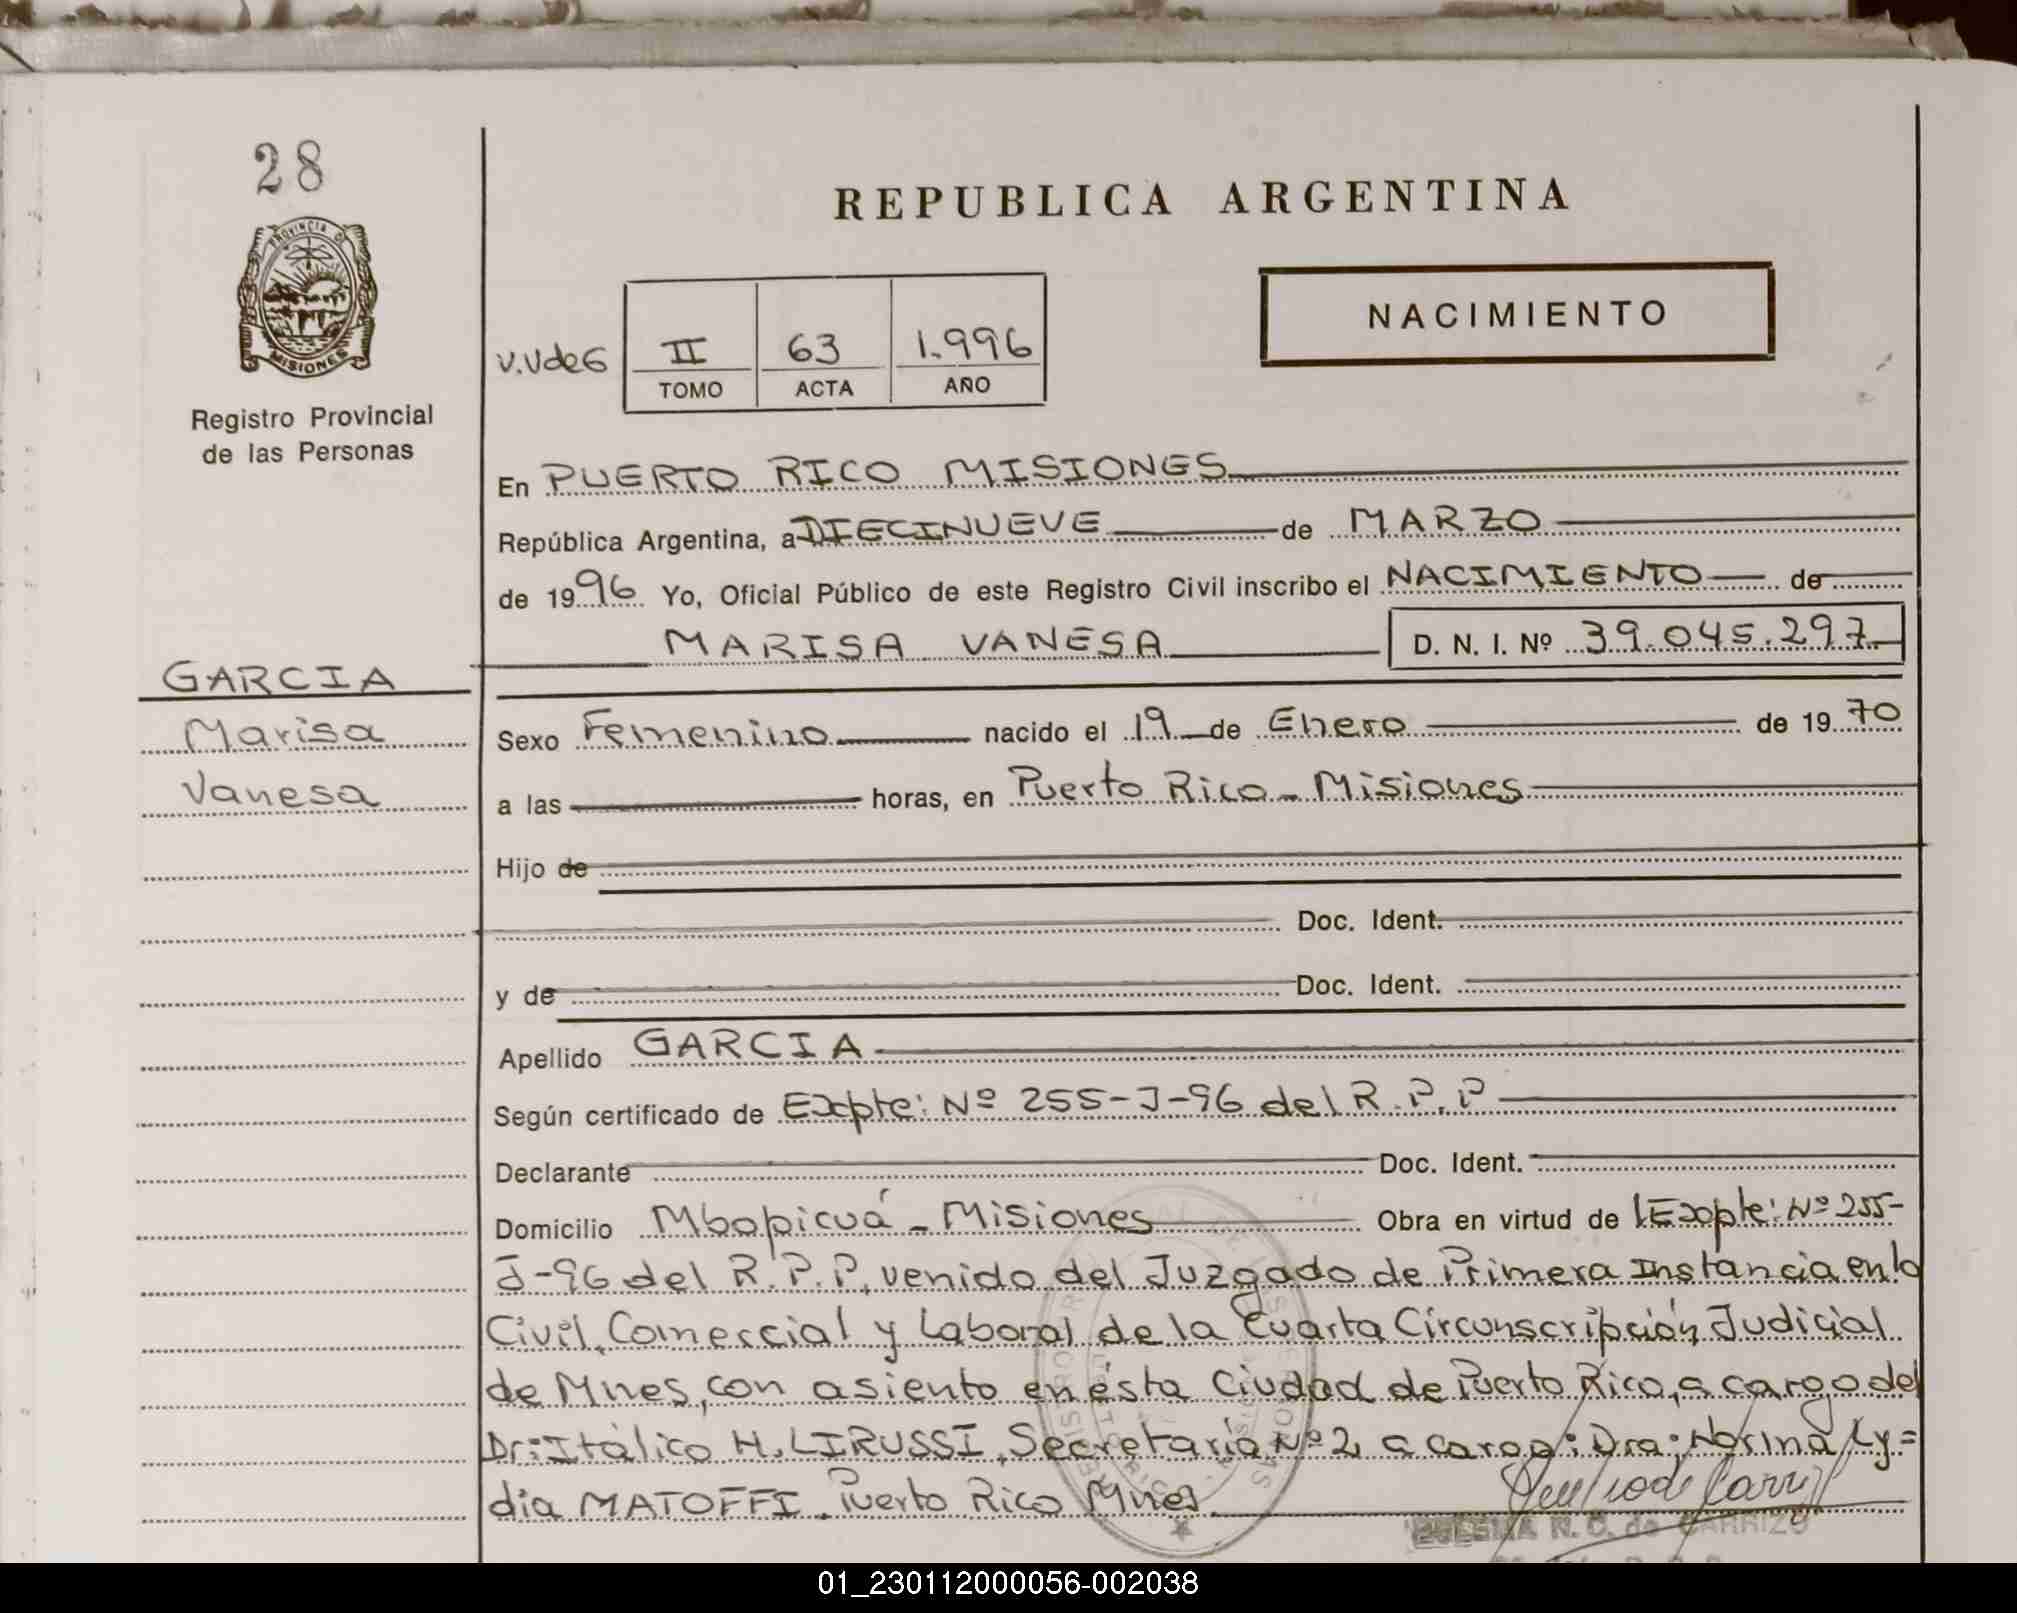 28
REPUBLICA ARGENTINA
PROVINCIA DE
MISIONES
NACIMIENTO
V.Vde6 II 63 1.996
TOMO ACTA AÑO
Registro Provincial
de las Personas
En PUERTO RICO MISIONES
República Argentina, a DIECINUEVE de MARZO
de 1996 Yo, Oficial Público de este Registro Civil inscribo el NACIMIENTO de
MARISA VANESA D. N. I. Nº 39.045.297
GARCIA
Marisa
Vanesa
Sexo Femenino nacido el 19 de Enero de 1970
a las horas, en Puerto Rico - Misiones
Hijo de
Doc. Ident.
y de Doc. Ident.
Apellido GARCIA
Según certificado de Expte: Nº 255-J-96 del R.P.P
Declarante Doc. Ident.
Domicilio Mbopicuá - Misiones Obra en virtud de lExpte: Nº 255-
J-96 del R.P.P, venido del Juzgado de Primera Instancia en lo
Civil, Comercial y Laboral de la Cuarta Circunscripción Judicial
de Mnes, con asiento en ésta Ciudad de Puerto Rico, a cargo del
Dr: Itálico H. LIRUSSI, Secretaría Nº 2, a cargo: Dra: Norina Ly=
dia MATOFFI. Puerto Rico Mnes
N. C. de CARRIZO
01_230112000056-002038